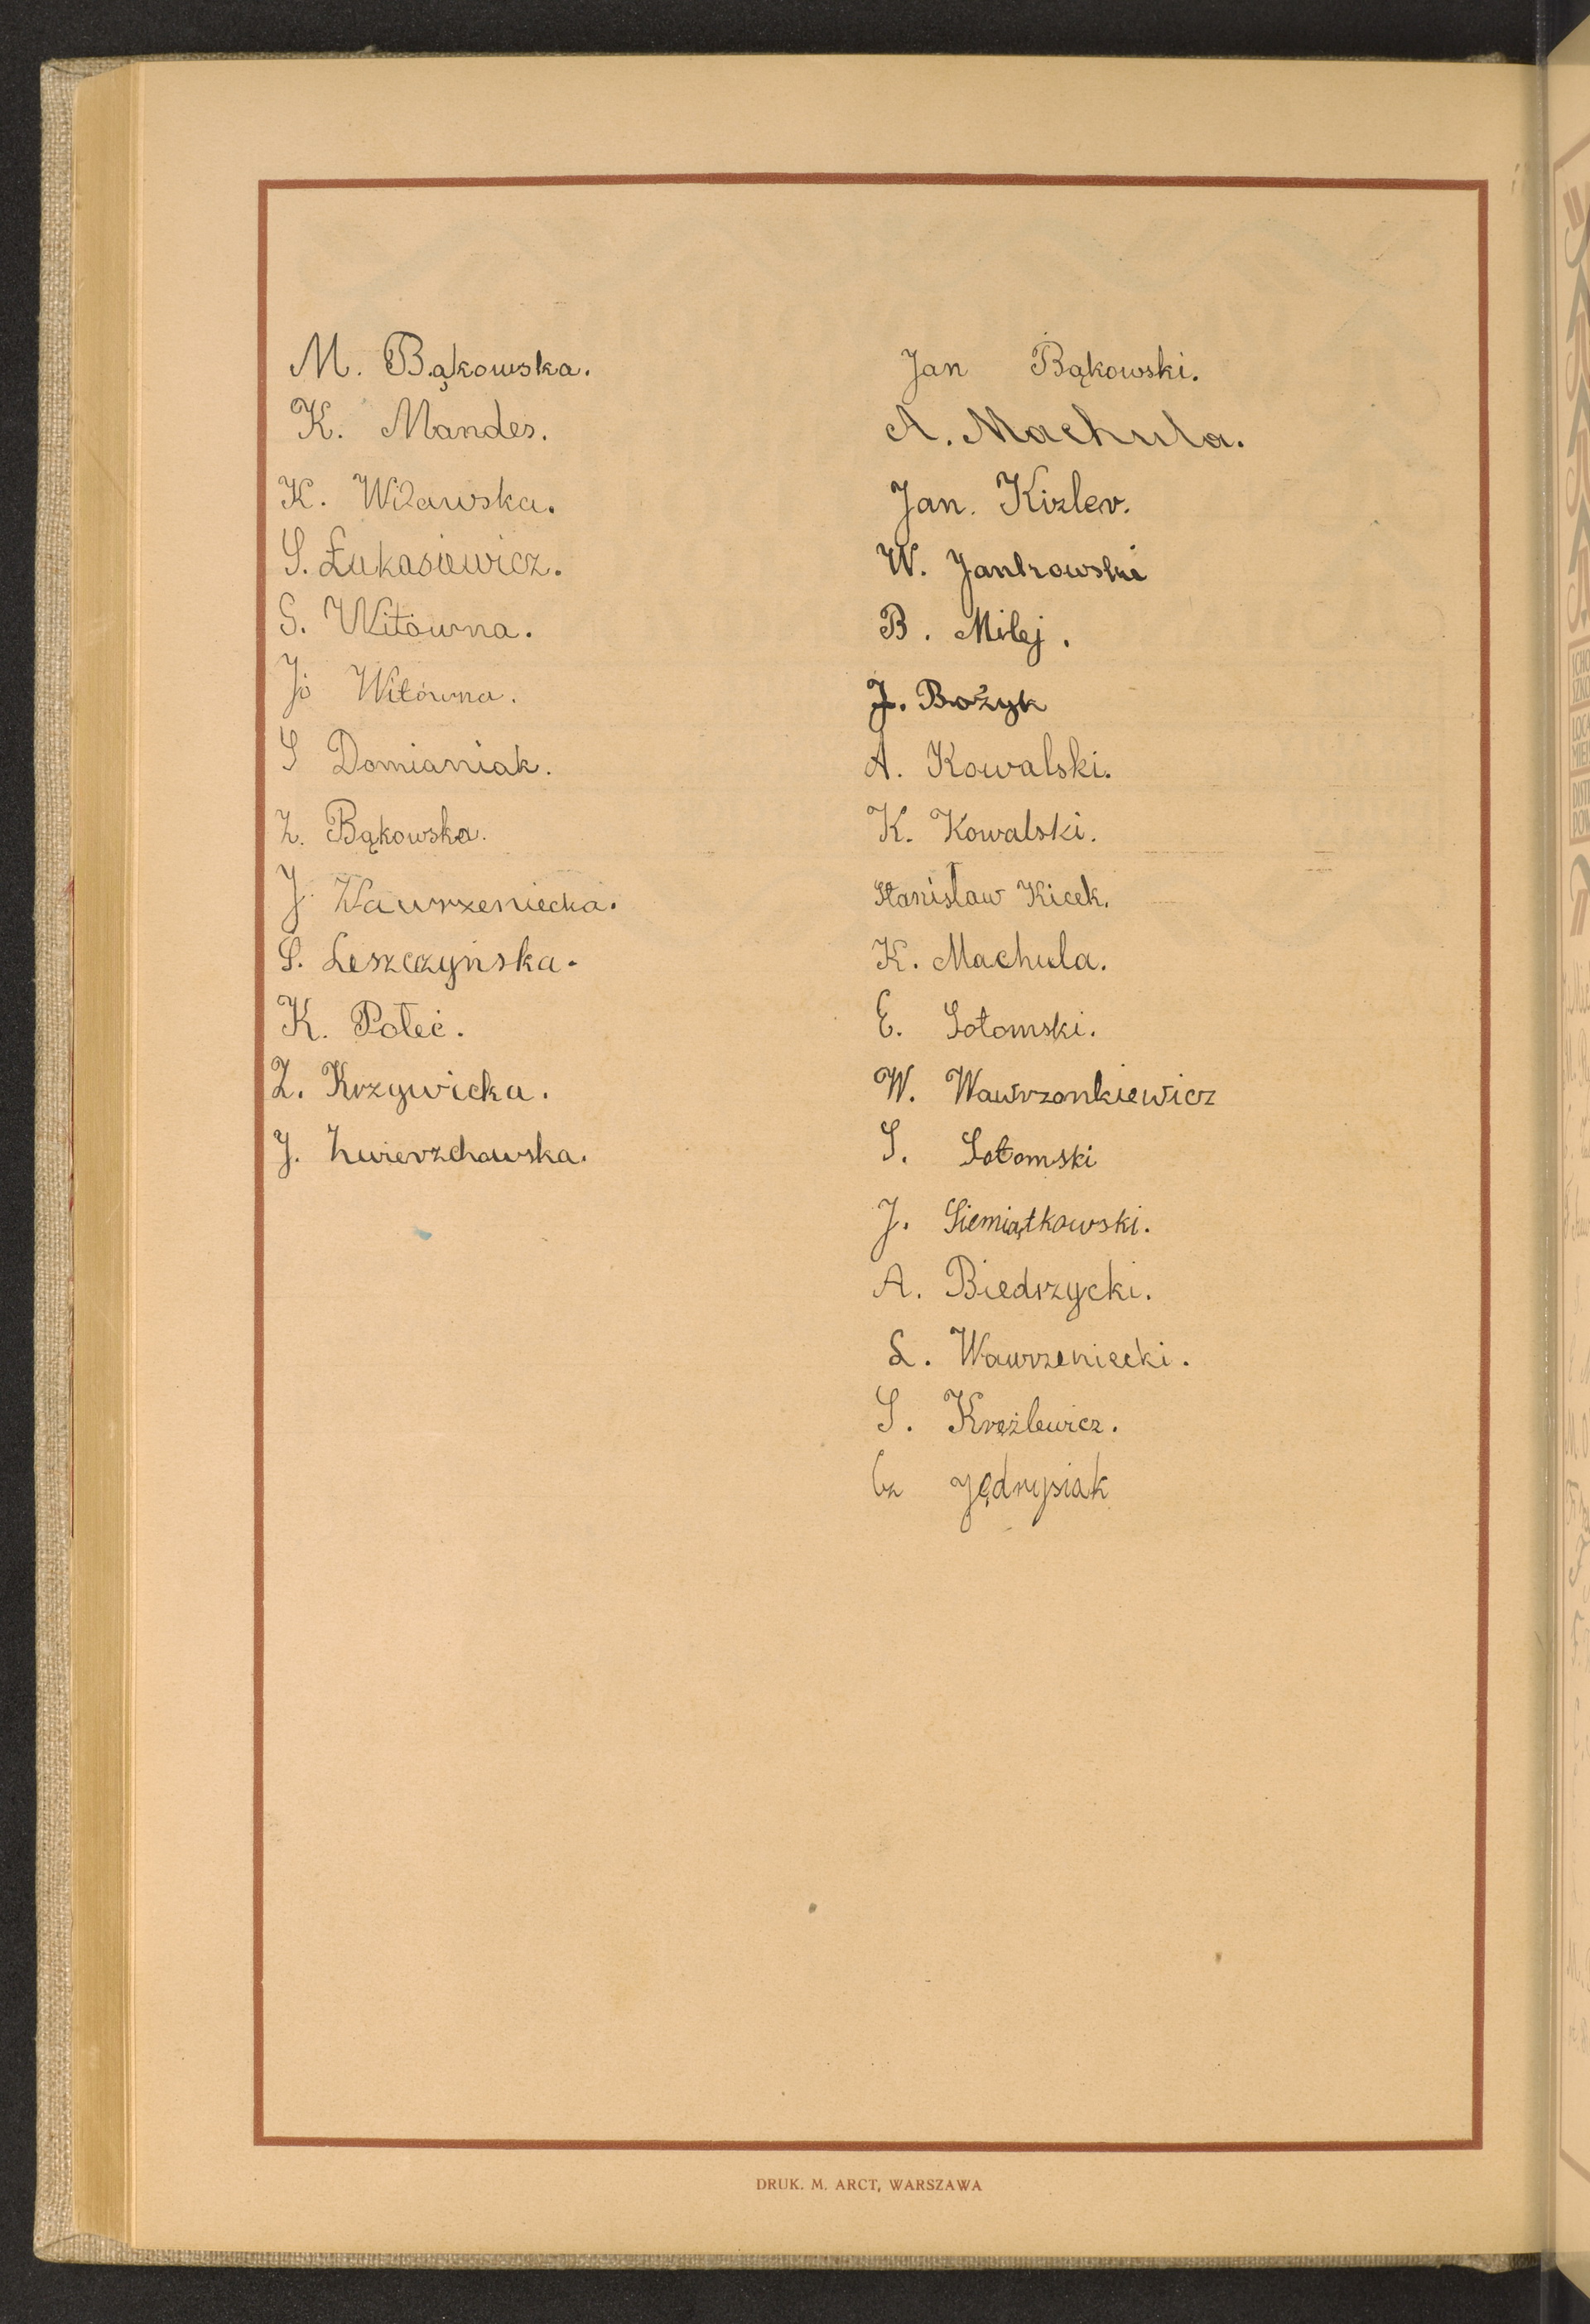 M. Bąkowska.
K. Mandes.
K. Wilawska.
S. Łukasiewicz.
S. Witówna.
Jó Witówna.
S Domianiak.
Z. Bąkowska.
J. Wawrzeniecka.
S. Leszczyńska.
K. Połeć.
Z. Krzywicka.
J. Zwierzchowska.
Jan Bąkowski.
A. Machula.
Jan. Kizler.
W. Jankowski
B. Milej.
J. Bożyk
A. Kowalski.
K. Kowalski.
Stanisław Kicek.
K. Machula.
E. Sotomski.
W. Wawrzonkiewicz
S. Sotomski
J. Siemiątkowski.
A. Biedrzycki.
L. Wawrzeniecki.
S. Krężlewicz.
Cz Jędrysiak
DRUK. M. ARCT, WARSZAWA